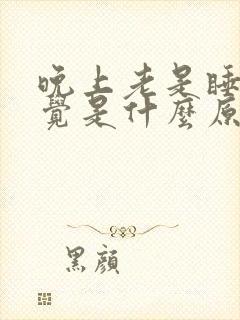 晚上老是睡
覺是什麼原
黑顏